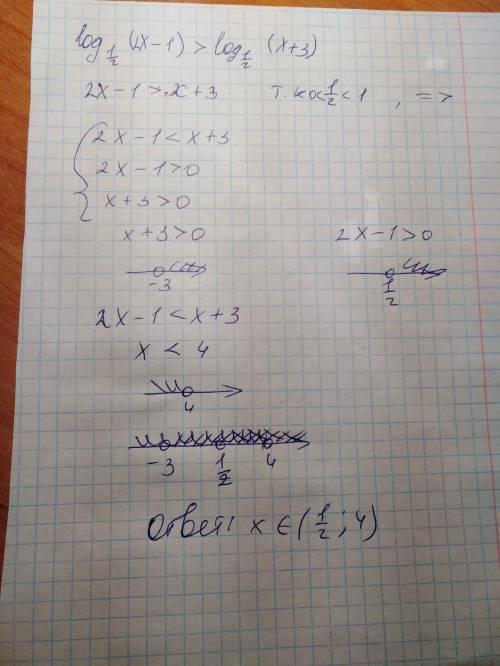 log 1/2 (2x-1) > log 1/2 (x+3)
2x-1 > x+3 т.к 0< 1/2 <1 , =>
{ 2x-1 < x+3
2x-1>0
x+3>0
x+3>0 2x-1>0
-3 1/2
2x-1 < x+3
x < 4
4
-3 1/2 4
Ответ: x ∈ (1/2; 4)